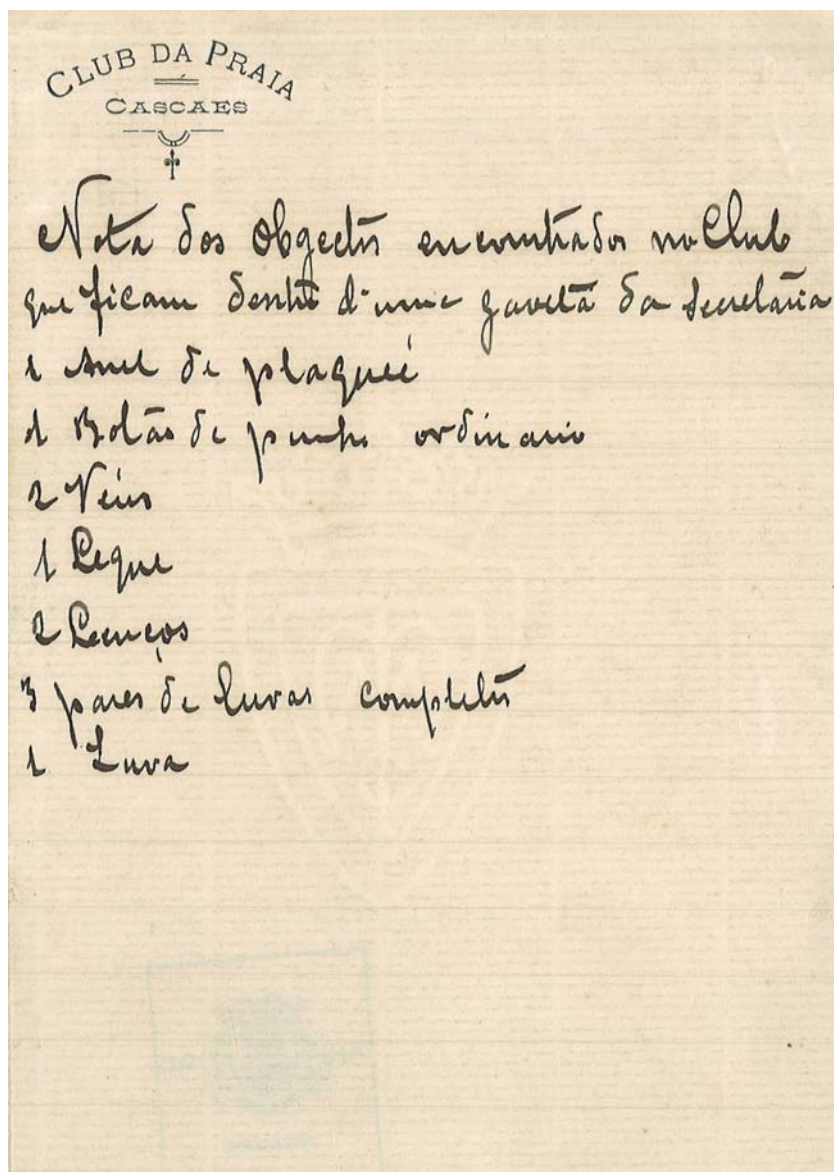 CLUB DA PRAIA
CASCAES
Nota dos Obgectos encontrados no Club
que ficam dentro d'uma gaveta da Secretária
1 Anel de plaqueé
1 Botão de punho ordinario
2 Véus
1 Leque
2 Lenços
3 pares de luvas completos
1 Luva